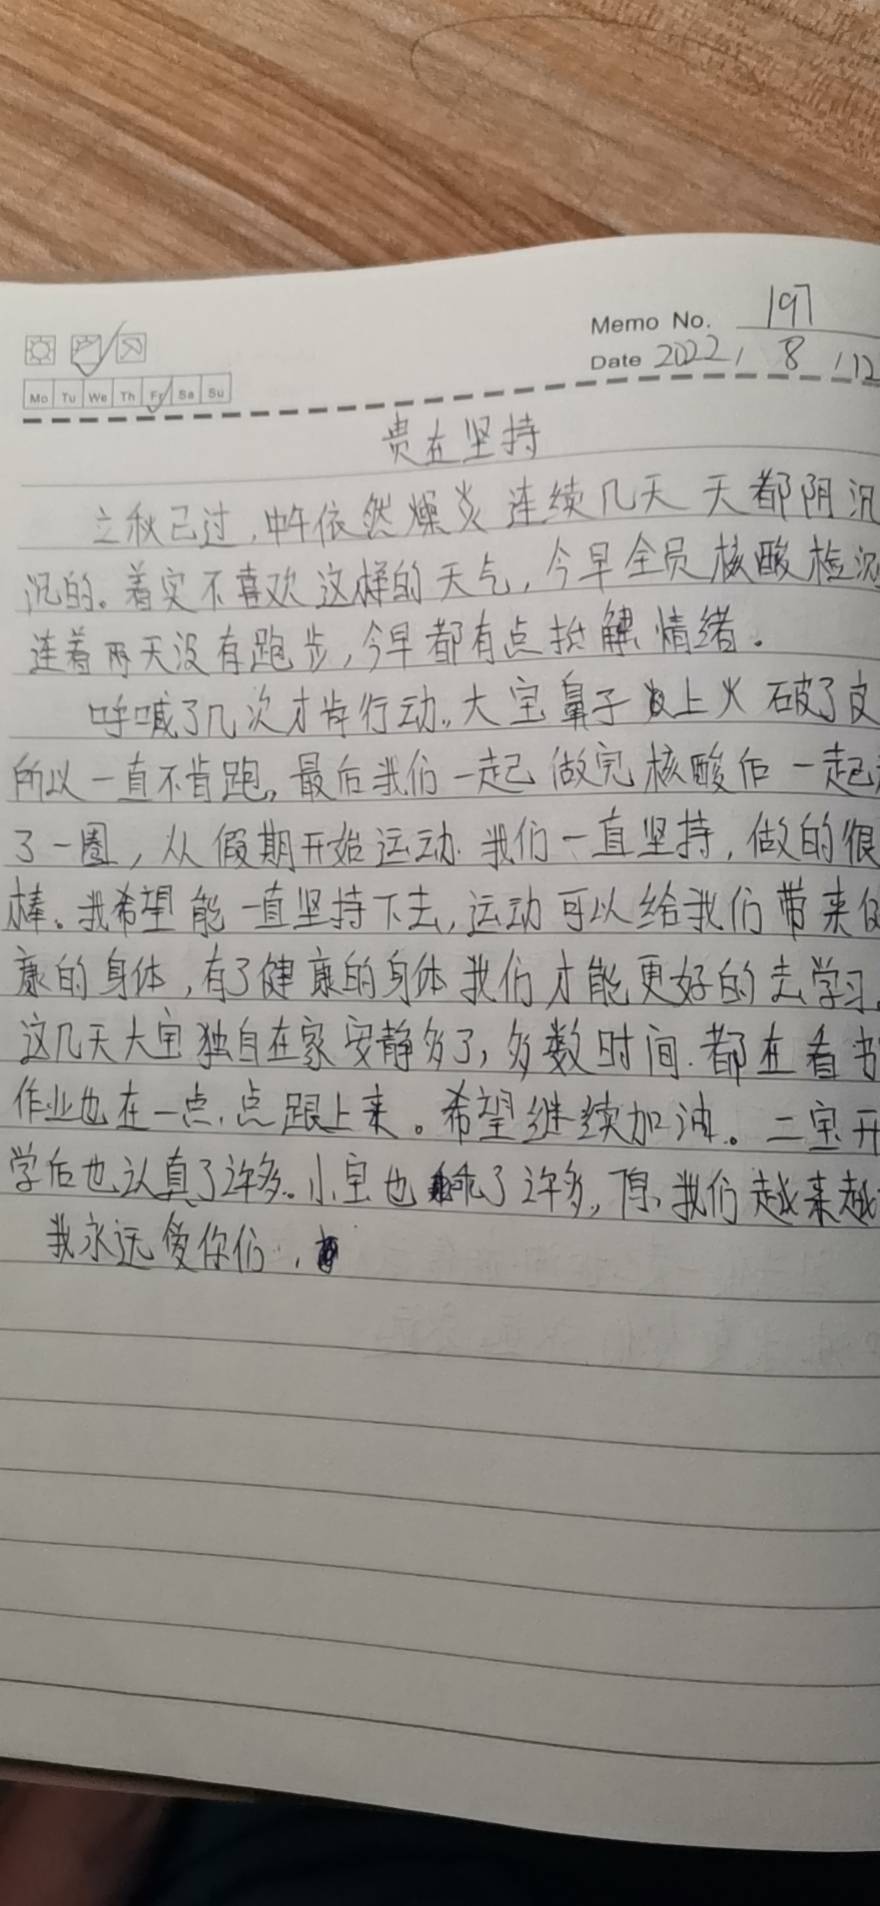 Memo No. 197
Date 2022 / 8 / 12
Mo Tu We Th Fr Sa Su
贵在坚持
立秋已过,中午依然燥炎连续几天天都阴沉
沉的。着实不喜欢这样的天气,今早全员核酸检测
连着两天没有跑步,今早都有点抵触情绪。
呼喊了几次才肯行动。大宝鼻子上火破了皮
所以一直不肯跑。最后我们一起做完核酸后一起
了一圈,从假期开始运动.我们一直坚持,做的很
棒。我希望能一直坚持下去,运动可以给我们带来
康的身体,有了健康的身体我们才能更好的去学习。
这几天大宝独自在家安静多了,多数时间.都在看书
作业也在一点.点跟上来。希望继续加油。二宝开
学后也认真了许多。小宝也乖了许多,我们越来越
我永远爱你们,